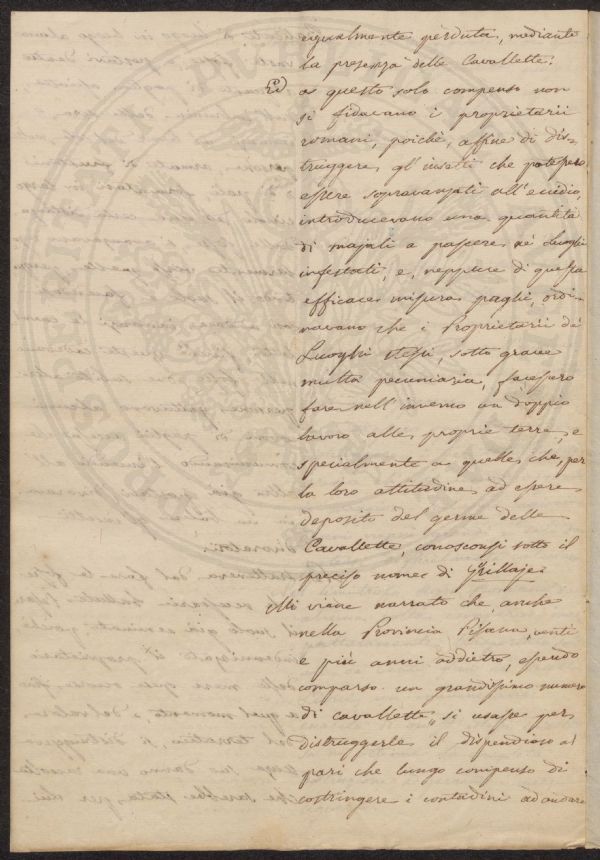 egualmente perduta, mediante
la presenza delle Cavallette.
Ed a questo solo compenso non
si fidavano i proprietarii
romani, poichè, affine di dis-
truggere gl'insetti che potessero
essere sopravanzati all'eccidio,
introducevano una quantità
di majali a pascere ne' Luoghi
infestati, e, neppure di questa
efficace misura paghi, ordi-
navano che i Proprietarii de'
Luoghi stessi, sotto grave
multa pecuniaria, facessero
fare nell'inverno un doppio
lavoro alle proprie terre, e
specialmente a quelle che, per
la loro attitudine ad essere
deposito del germe delle
Cavallette, conosconsi sotto il
preciso nome di Grillaje.
Mi viene narrato che, anche
nella Provincia Pisana, venti
e più anni addietro, essendo
comparso un grandissimo numero
di cavallette, si usasse per
distruggerle il dispendioso al
pari che lungo compenso di
costringere i contadini ad andare